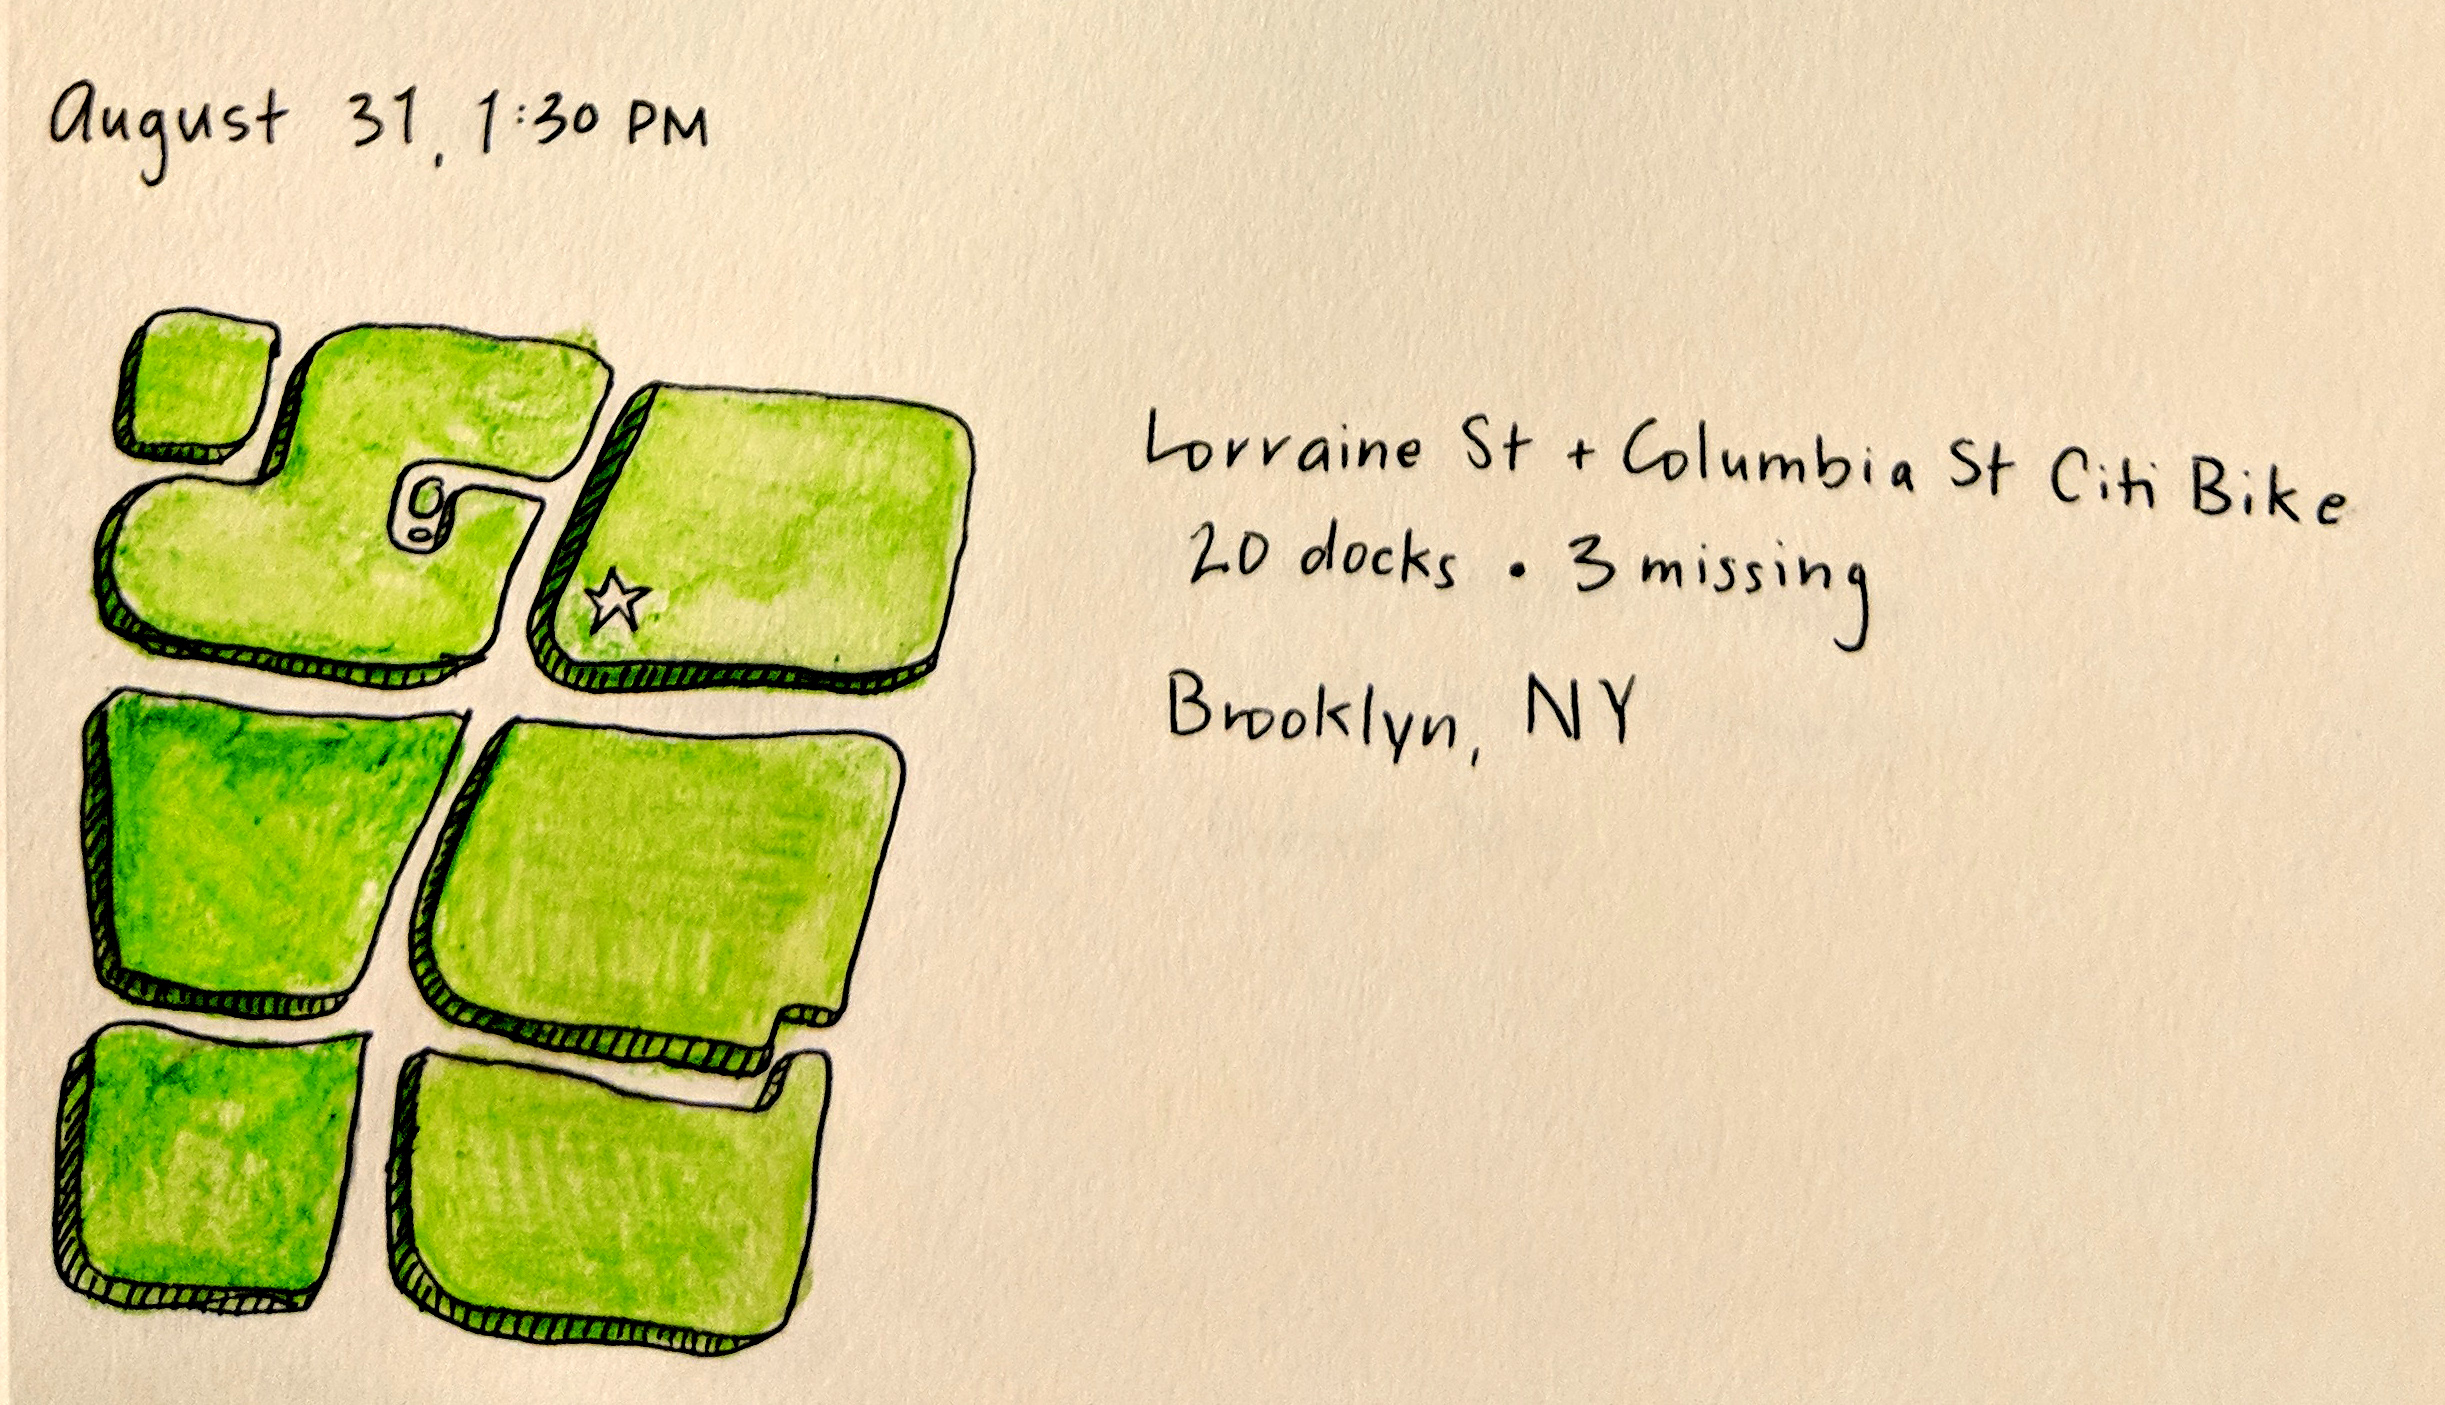 August 31, 1:30 PM
Lorraine St + Columbia St Citi Bike
20 docks • 3 missing
Brooklyn, NY